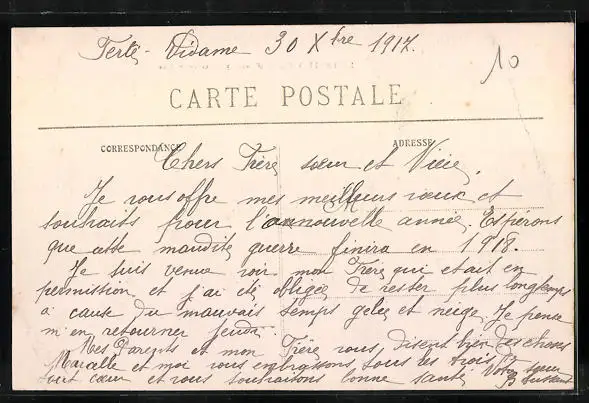 Ferté-Vidame 30 Xbre 1917.
10
CARTE POSTALE
CORRESPONDANCE
ADRESSE
Chers Frère sœur et Nièce,
Je vous offre mes meilleurs vœux et
souhaits pour l'année nouvelle année. Espérons
que cette maudite guerre finira en 1918.
Je suis venue voir mon Frère qui etait en
permission et j'ai été obligée de rester plus longtemps
a cause du mauvais temps gelée et neige. Je pense
m'en retourner jeudi.
Mes Parents et mon Frère vous disent bien des choses
Marcelle et moi vous embrassons tous les trois
tout cœur et vous souhaitons bonne santé Votre sœur